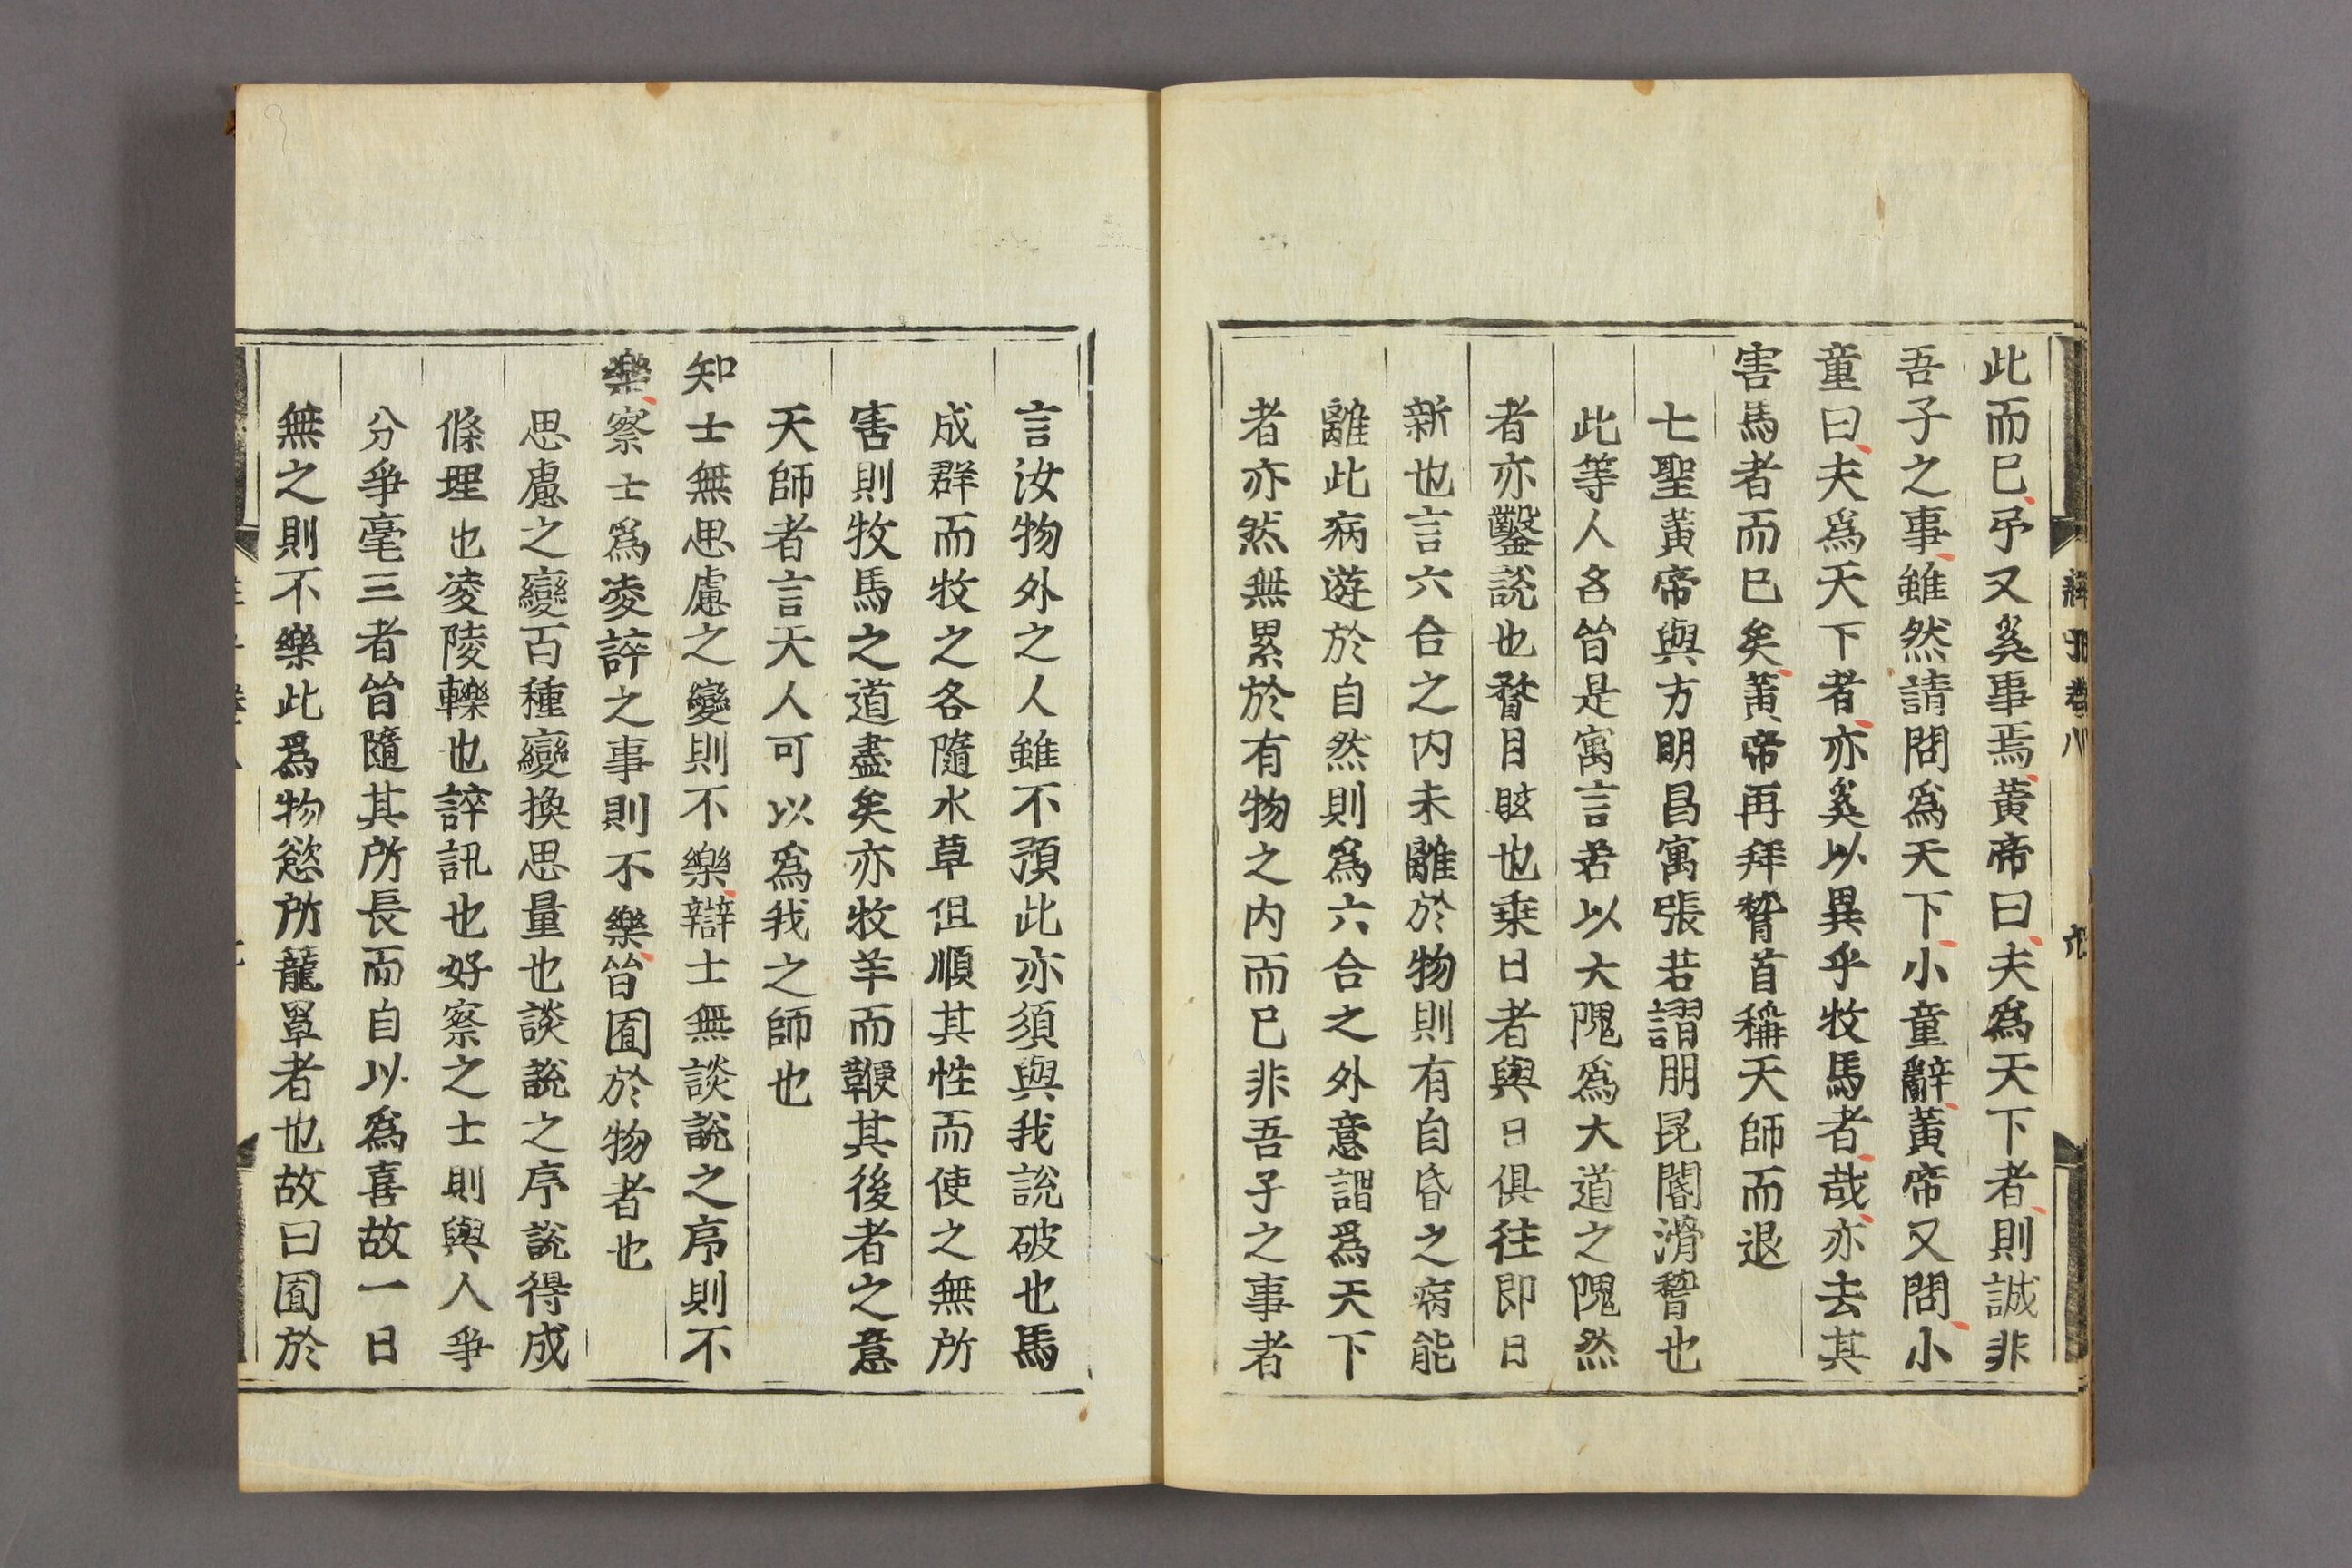 此而已予又奚事焉黃帝曰夫爲天下者則誠非
吾子之事雖然請問爲天下小童辭黃帝又問小
童曰夫爲天下者亦奚以異乎牧馬者哉亦去其
害馬者而已矣黃帝再拜稽首稱天師而退
七聖黃帝與方明昌寓張若謵朋昆閽滑稽也
此等人名皆是寓言君以大隗爲大道之隗然
者亦鑿說也瞀目眩也乗日者與日俱往即日
新也言六合之内未離於物則有自昏之病能
離此病遊於自然則爲六合之外意謂爲天下
者亦然無累於有物之内而已非吾子之事者
言汝物外之人雖不預此亦須與我說破也馬
成群而牧之各隨水草但順其性而使之無所
害則牧馬之道盡矣亦牧羊而鞭其後者之意
天師者言天人可以爲我之師也
知士無思慮之變則不樂辯士無談說之序則不
樂察士爲凌誶之事則不樂皆囿於物者也
思慮之變百種變換思量也談說之序說得成
條理也凌陵轢也誶訊也好察之士則與人爭
分爭毫三者皆隨其所長而自以爲喜故一日
無之則不樂此爲物慾所籠罩者也故曰囿於